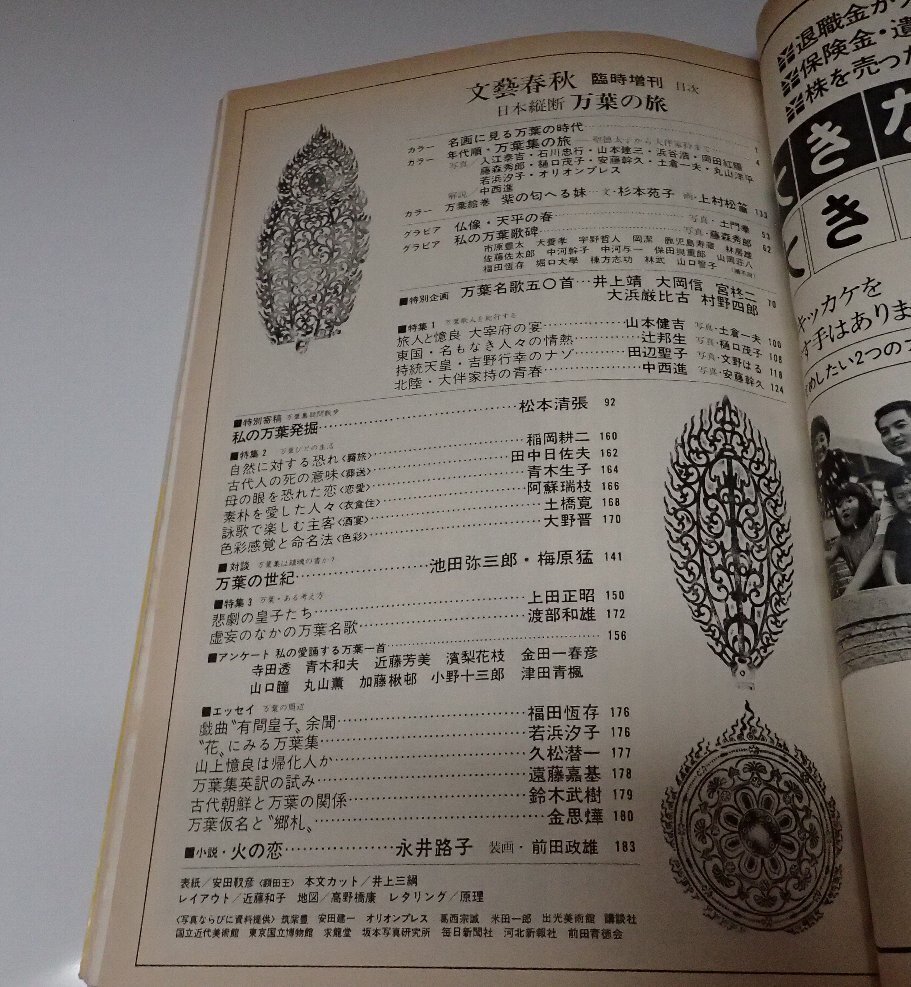 文藝春秋 臨時増刊 目次
日本縦断 万葉の旅
カラー 名画に見る万葉の時代 1
カラー 年代順・万葉集の旅 聖徳太子から大伴家持まで 4
写真/入江泰吉・石川忠行・山本建三・浜谷浩・岡田紅陽
藤森秀郎・樋口茂子・安藤幹久・土倉一夫・丸山洋平
若浜汐子・オリオンプレス
解説/中西進
カラー 万葉絵巻 紫の匂へる妹…文・杉本苑子 画・上村松篁 133
グラビア 仏像・天平の春 写真・土門拳 53
グラビア 私の万葉歌碑 写真・藤森秀郎 62
市原豊太 犬養孝 宇野哲人 岡潔 鹿児島寿蔵 林房雄
佐藤佐太郎 中河幹子 中河与一 保田與重郎 山岡荘八
福田恆存 堀口大學 棟方志功 林武 山口誓子
■特別企画 万葉名歌五〇首…井上靖 大岡信 宮柊二 70
大浜厳比古 村野四郎
■特集1 万葉歌人と紀行する
旅人と憶良 大宰府の宴……山本健吉 写真・土倉一夫 100
東国・名もなき人々の情熱……辻邦生 写真・樋口茂子 108
持統天皇・吉野行幸のナゾ……田辺聖子 写真・文野はる 118
北陸・大伴家持の青春……中西進 写真・安藤幹久 124
■特別寄稿 万葉集疑問散歩
私の万葉発掘……松本清張 92
■特集2 万葉びとの生活
自然に対する恐れ〈羇旅〉……稲岡耕二 160
古代人の死の意味〈葬送〉……田中日佐夫 162
母の眼を恐れた恋〈恋愛〉……青木生子 164
素朴を愛した人々〈衣食住〉……阿蘇瑞枝 166
詠歌で楽しむ主客〈酒宴〉……土橋寛 168
色彩感覚と命名法〈色彩〉……大野晋 170
■対談 万葉集は鎮魂の書か?
万葉の世紀……池田弥三郎・梅原猛 141
■特集3 万葉・ある考え方
悲劇の皇子たち……上田正昭 150
虚妄のなかの万葉名歌……渡部和雄 172
■アンケート 私の愛誦する万葉一首…… 156
寺田透 青木和夫 近藤芳美 濱梨花枝 金田一春彦
山口瞳 丸山薫 加藤楸邨 小野十三郎 津田青楓
■エッセイ 万葉の周辺
戯曲〝有間皇子〟余聞……福田恆存 176
〝花〟にみる万葉集……若浜汐子 176
山上憶良は帰化人か……久松潜一 177
万葉集英訳の試み……遠藤嘉基 178
古代朝鮮と万葉の関係……鈴木武樹 179
万葉仮名と〝郷札〟……金思燁 180
■小説・火の恋……永井路子 装画・前田政雄 183
表紙/安田靫彦〈額田王〉 本文カット/井上三綱
レイアウト/近藤和子 地図/高野橋康 レタリング/原理
〈写真ならびに資料提供〉筑紫豊 安田建一 オリオンプレス 葛西宗誠 米田一郎 出光美術館 講談社
国立近代美術館 東京国立博物館 求龍堂 坂本写真研究所 毎日新聞社 河北新報社 前田育徳会
退職金が
保険金・遺
株を売った
ときな
とき
キッカケを
す手はありま
めしたい2つの